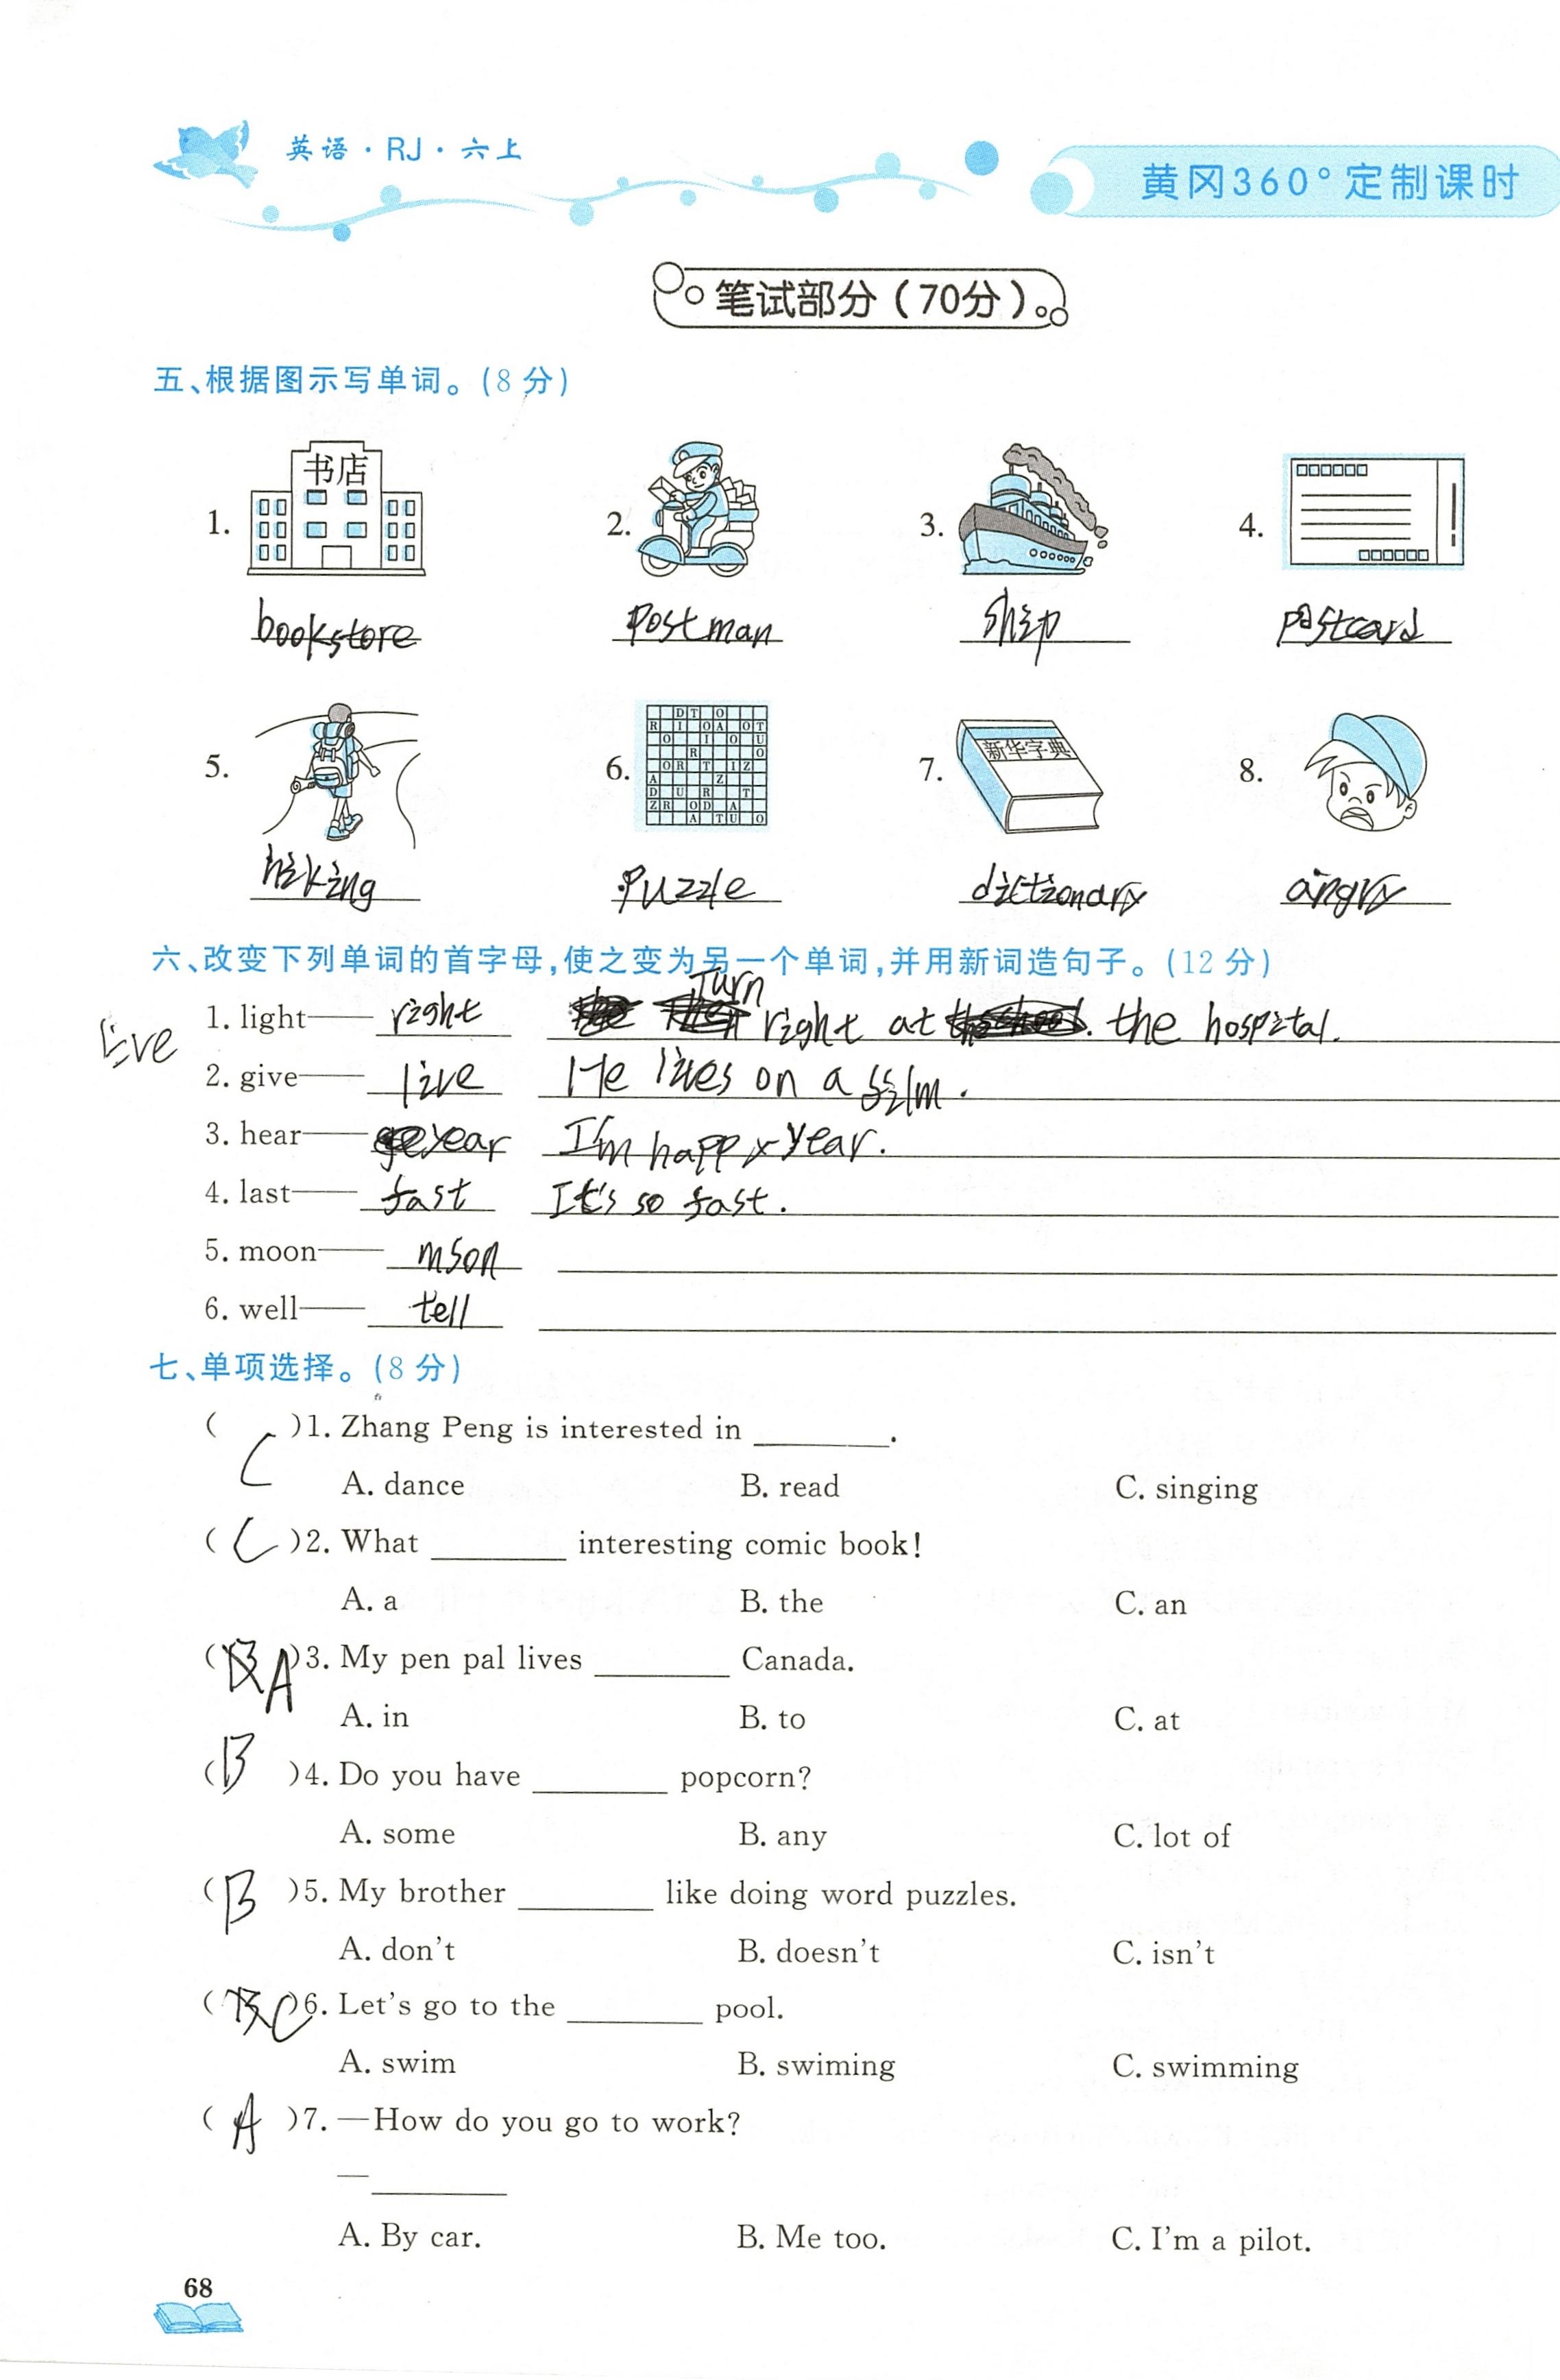 英语·RJ·六上
黄冈360°定制课时
笔试部分(70分)
五、根据图示写单词。(8分)
书店
1. 2. 3. 4.
bookstore postman ship postcard
新华字典
5. 6. 7. 8.
hiking puzzle dictionary angry
六、改变下列单词的首字母,使之变为另一个单词,并用新词造句子。(12分)
1. light—— right Turn right at the hospital.
live
2. give—— live He lives on a film.
3. hear—— year I'm happy year.
4. last—— fast It's so fast.
5. moon—— mson
6. well—— tell
七、单项选择。(8分)
( C )1. Zhang Peng is interested in ________.
A. dance B. read C. singing
( C )2. What ________ interesting comic book!
A. a B. the C. an
( A )3. My pen pal lives ________ Canada.
A. in B. to C. at
( B )4. Do you have ________ popcorn?
A. some B. any C. lot of
( B )5. My brother ________ like doing word puzzles.
A. don't B. doesn't C. isn't
( C )6. Let's go to the ________ pool.
A. swim B. swiming C. swimming
( A )7. —How do you go to work?
—________
A. By car. B. Me too. C. I'm a pilot.
68